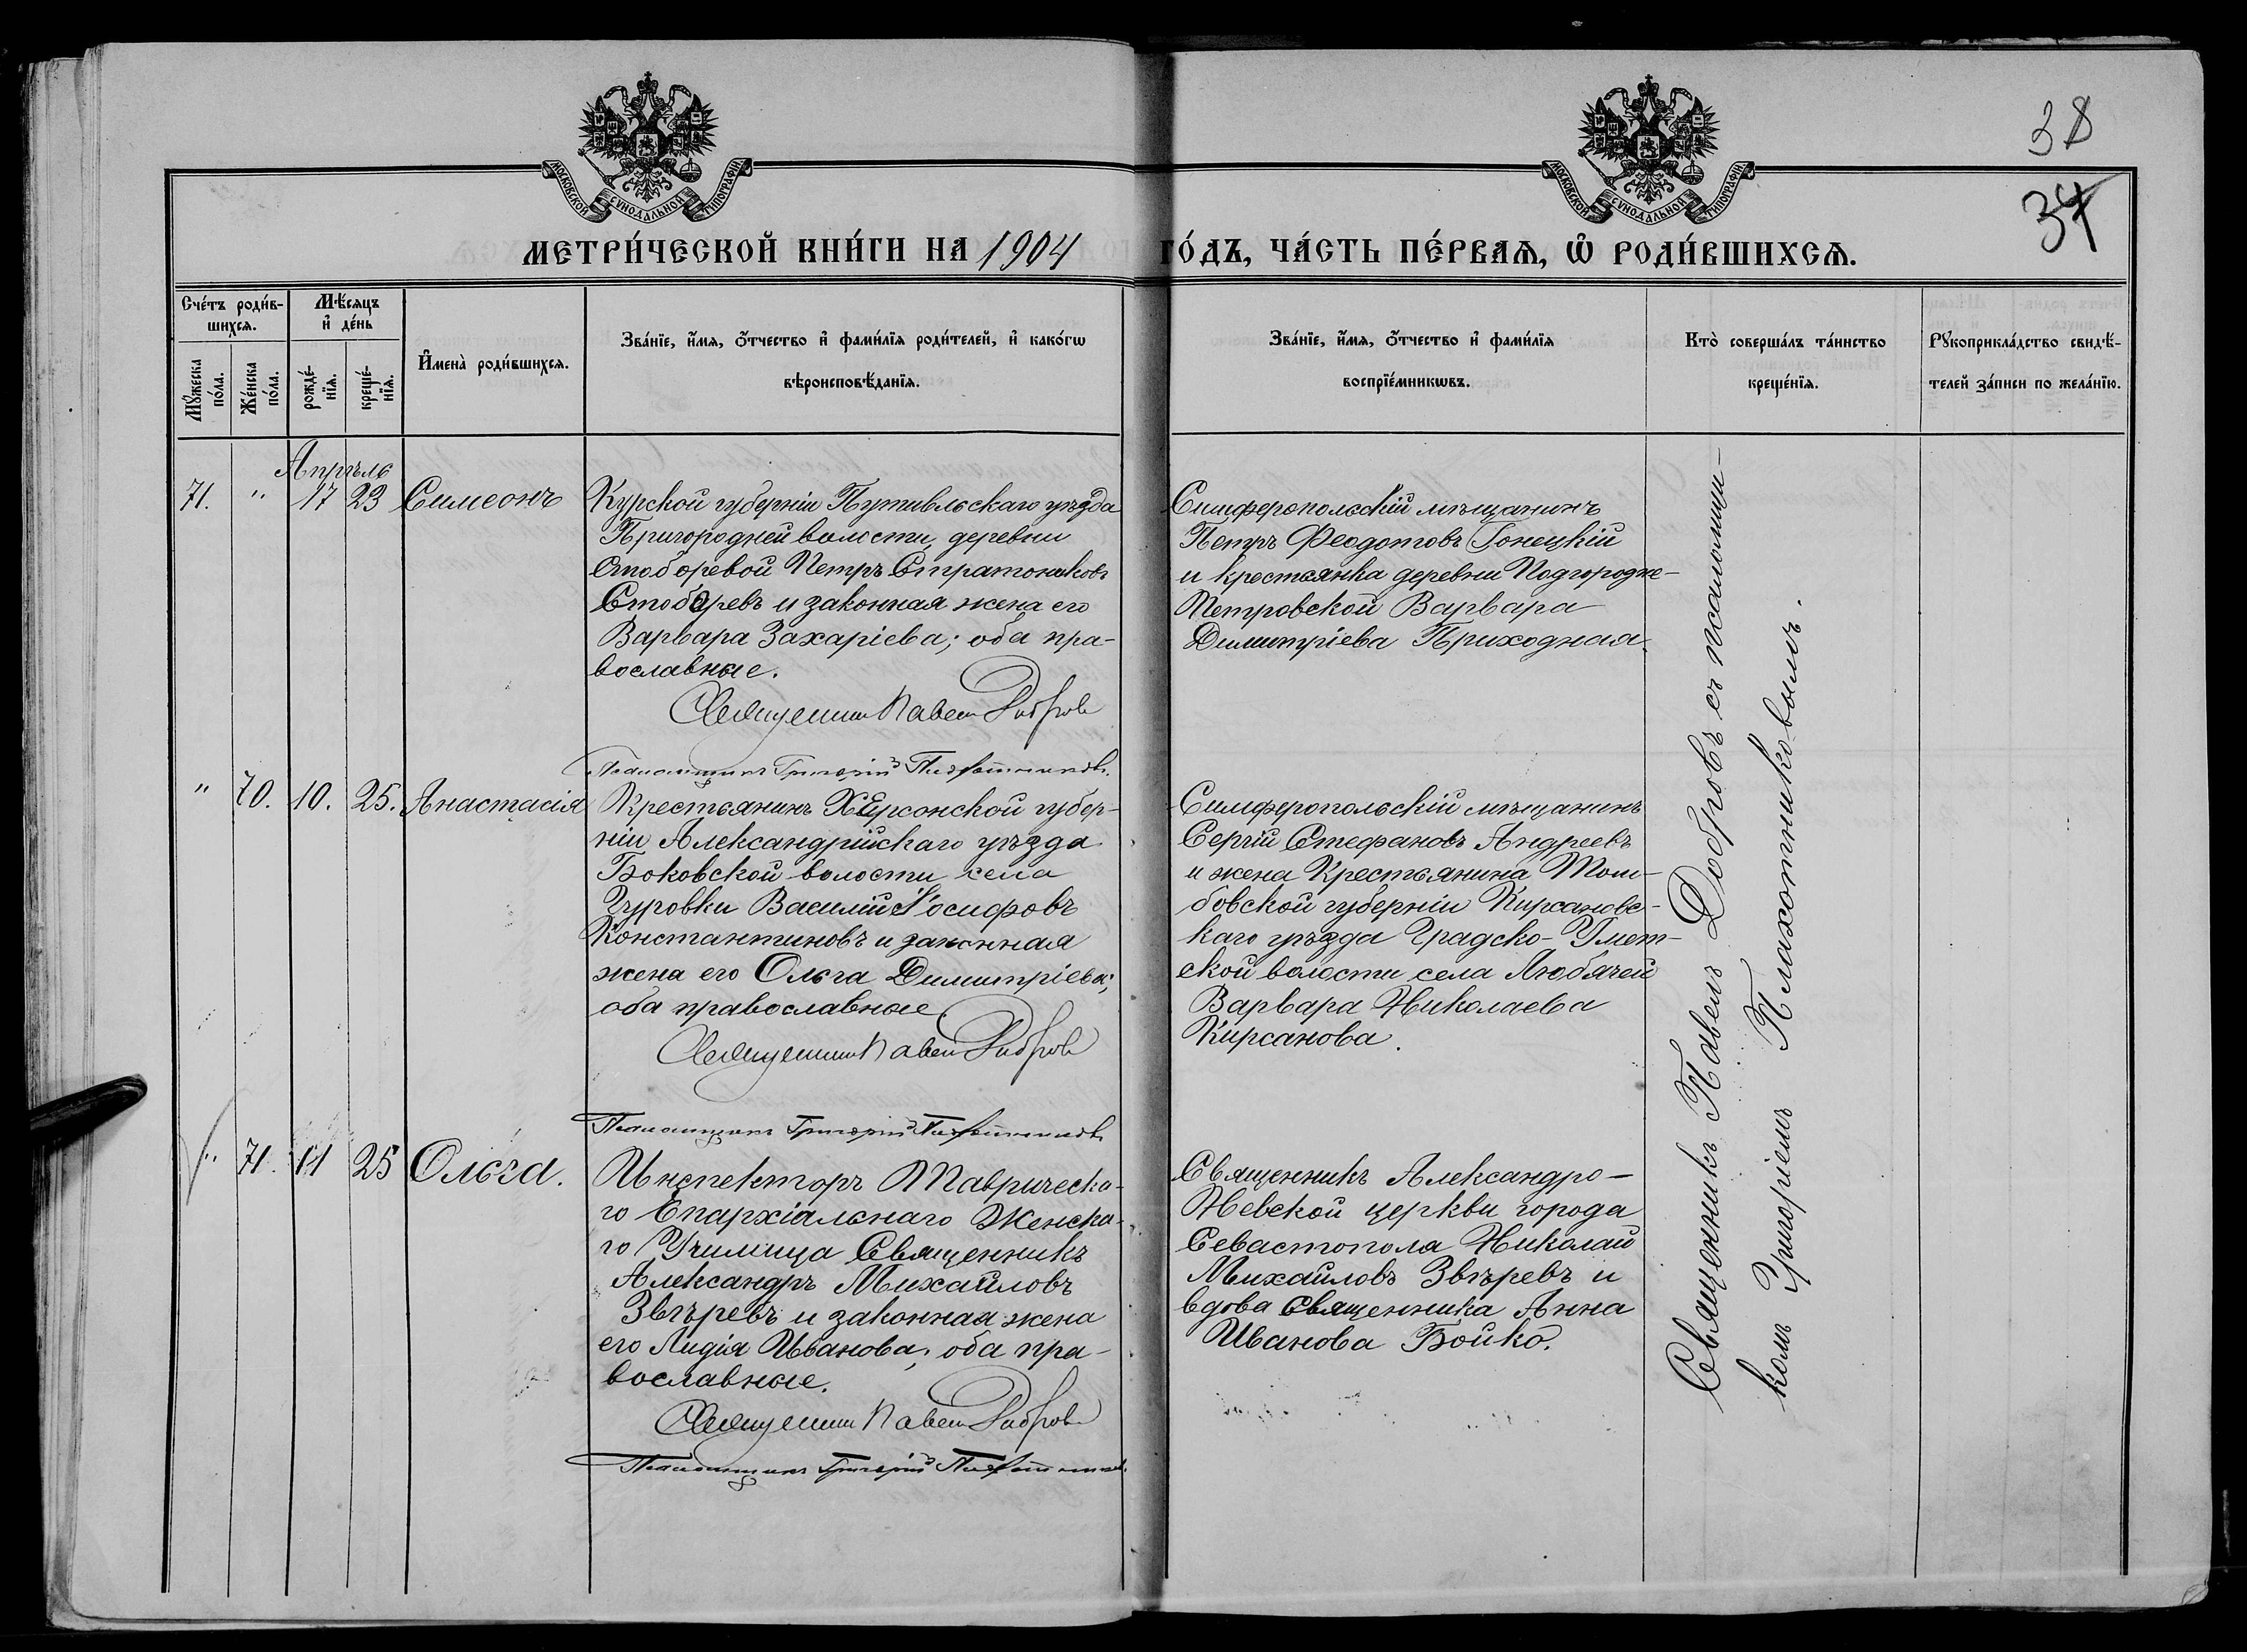 38
37
МОСКОВСКОЙ СѴНОДАЛЬНОЙ ТИПОГРАФІИ
МОСКОВСКОЙ СѴНОДАЛЬНОЙ ТИПОГРАФІИ
МЕТРИ́ЧЕСКОЙ КНИ́ГИ НА 1904 ГО́ДЪ, ЧА́СТЬ ПЕ́РВАѦ, Ѿ РОДИ́ВШИХСѦ.
Сче́тъ роди́в-
шихсѧ.
Мꙋ́жеска
по́ла.
Же́нска
по́ла.
Мѣ́сяцъ
и҆ де́нь
рожде́-
нїѧ.
креще́-
нїѧ.
И҆мена̀ роди́вшихсѧ.
Зва́нїе, и҆́мѧ, ѻ҆́тчество и҆ фами́лїѧ роди́телей, и҆ како́гѡ
вѣроисповѣ́данїѧ.
Зва́нїе, и҆́мѧ, ѻ҆́тчество и҆ фами́лїѧ
воспрїе́мникѡвъ.
Кто̀ соверша́лъ та́инство
креще́нїѧ.
Рꙋкоприкла́дство свидѣ́-
телей за́писи по жела́нїю.
Апрѣль
71. " 17 23 Симеонъ
Курской губерніи Путивльскаго уѣзда
Пригородней волости, деревни
Стоборевой Петръ Стратониковъ
Стобыревъ и законная жена его
Варвара Захаріева; оба пра-
вославные.
Священникъ Павелъ Добровъ
Псаломщикъ Григорій Плахотниковъ.
Симферопольскій мѣщанинъ
Петръ Феодотовъ Гонецкій
и крестьянка деревни Подгородне-
Петровской Варвара
Димитріева Приходная.
" 70. 10. 25. Анастасія
Крестьянинъ Херсонской губер-
ніи Александрійскаго уѣзда
Боковской волости села
Гуровки Василій Іосифовъ
Константиновъ и законная
жена его Ольга Димитріева;
оба православные.
Священникъ Павелъ Добровъ
Псаломщикъ Григорій Плахотниковъ
Симферопольскій мѣщанинъ
Сергій Стефановъ Андреевъ
и жена Крестьянина Там-
бовской губерніи Кирсановс-
каго уѣзда Градско-Умет-
ской волости села Любячей
Варвара Николаева
Кирсанова.
" 71. 11 25 Ольга.
Инспекторъ Таврическа-
го Епархіальнаго Женска-
го Училища Священникъ
Александръ Михаиловъ
Звѣревъ и законная жена
его Лидія Иванова; оба пра-
вославные.
Священникъ Павелъ Добровъ
Псаломщикъ Григорій Плахотниковъ.
Священникъ Александро-
Невской церкви города
Севастополя Николай
Михаиловъ Звѣревъ и
вдова священника Анна
Иванова Бойко.
Священникъ Павелъ Добровъ съ псаломщи-
комъ Григоріемъ Плахотниковымъ.